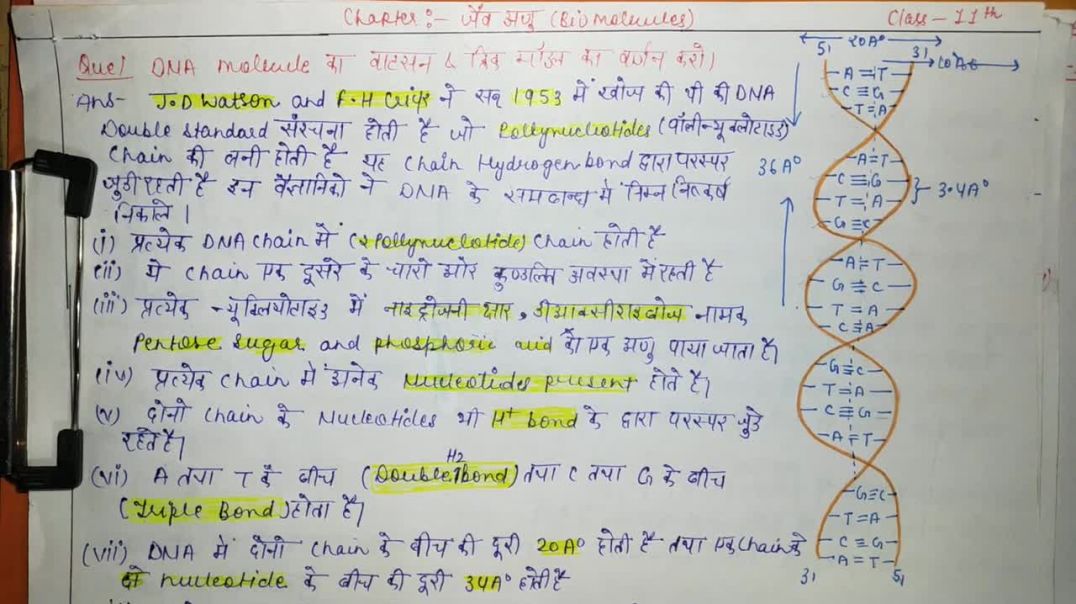 Chapter:- जैव अणु (Bio molecules) Class - 11th
Que1 DNA molecule का वाटसन & क्रिक मॉडल का वर्णन करो।
Ans- J.D Watson and F.H Cricks ने सन् 1953 में खोज की थी की DNA
Double standard संरचना होती है जो Pollynucliotides (पॉलीन्यूक्लोटाइड)
Chain की बनी होती है यह Chain Hydrogen bond द्वारा परस्पर
जुडी रहती है इन वैज्ञानिको ने DNA के सम्बन्ध में निम्न निष्कर्ष
निकाले।
(i) प्रत्येक DNA Chain में (2 Pollynuclotide) Chain होती है
(ii) ये Chain एक दूसरे के चारो ओर कुण्डलित अवस्था में रहती है
(iii) प्रत्येक न्यूक्लियोटाइड में नाइट्रोजनी क्षार, डीआक्सीराइबोज नामक
Pentose Sugar and phosphoric acid की एक अणु पाया जाता है।
(iv) प्रत्येक Chain में अनेक Nucleotides present होते है।
(v) दोनो Chain के Nucleotides भी H+ bond के द्वारा परस्पर जुड़े
रहते है।
(vi) A तथा T के बीच (Double H2 bond) तथा C तथा G के बीच
(Triple Bond) होता है।
(vii) DNA में दोनो Chain के बीच की दूरी 20A° होती है तथा एक Chain के
दो nucleotide के बीच की दूरी 34A° होती है
5' 20A° 3'
A = T
C ≡ G
T = A
36A°
A = T
C ≡ G
T = A
3.4A°
G ≡ C
A = T
G ≡ C
T = A
C ≡ A
G ≡ C
T = A
C ≡ G
A = T
G ≡ C
T = A
C ≡ G
A = T
3' 5'